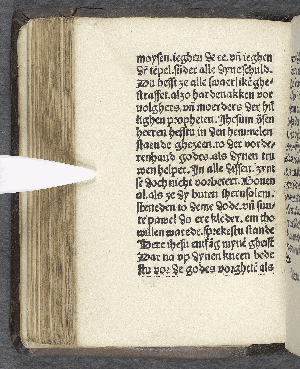 moysen. ieghen de ee. vñ ieghen
dē tēpel. sūder alle dyne schuld.
Du hefst ze alle swaerlikē ghe-
straffet. alzo hardenakken vor
volghers. vñ moerders der hil
lighen propheten. Jhesum dȳen
heeren hefstu in den hemmelen
staende ghezeen. to der vorde-
renhand godes. als dynen tru
wen helper. In alle dissen. zynt
se doch nicht vorbetert. Bouen
al. als ze dy buten iherusalem.
steneden to deme dode. vñ sun-
te pawel do ere kleder. em tho
willen warede. sprekestu stande
Here ihesu entfāg mynē gheist
Dar na vp dynen kneen bede
stu vor de godes vorghetē als